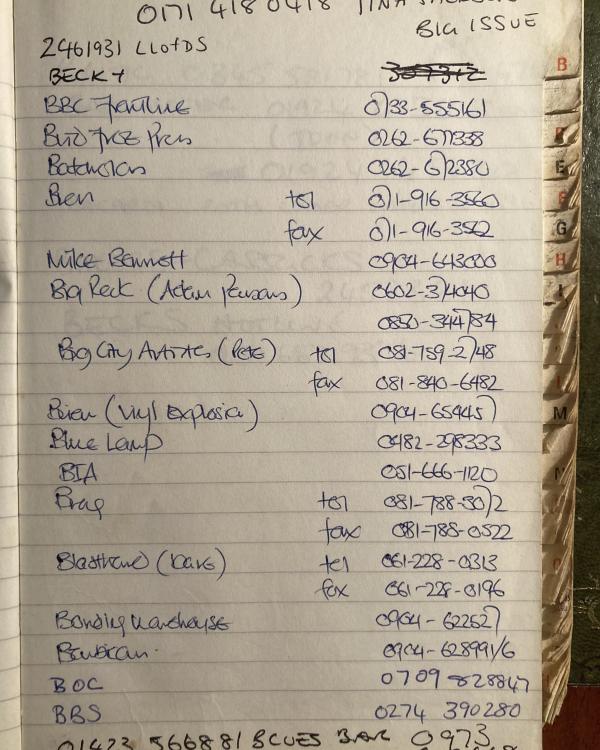 0171 418 0418 TINA
BIG ISSUE
2461931 LLOYDS
BECKY
BBC Jenline 0133-555161
Bird Free Press 0262-671338
Batchelors 0262-612380
Ben tel 071-916-3560
fax 071-916-3562
Mike Bennett 0904-643000
Big Reck (Adam Parsons) 0602-374040
0850-344784
Big City Artistes (Pete) tel 081-759-2748
fax 081-840-6482
Brian (Vinyl Explosion) 0904-654457
Blue Lamp 0482-298333
BIA 051-666-1120
Brag tel 081-788-3072
fax 081-788-0522
Blasthard (Dave) tel 061-228-0313
fax 061-228-0196
Bonding Warehouse 0904-622627
Barbican 0904-628991/6
BOC 0709 828847
BBS 0274 390280
01423 566881 BLUES BAR 0973
B
E
F
G
H
I
M